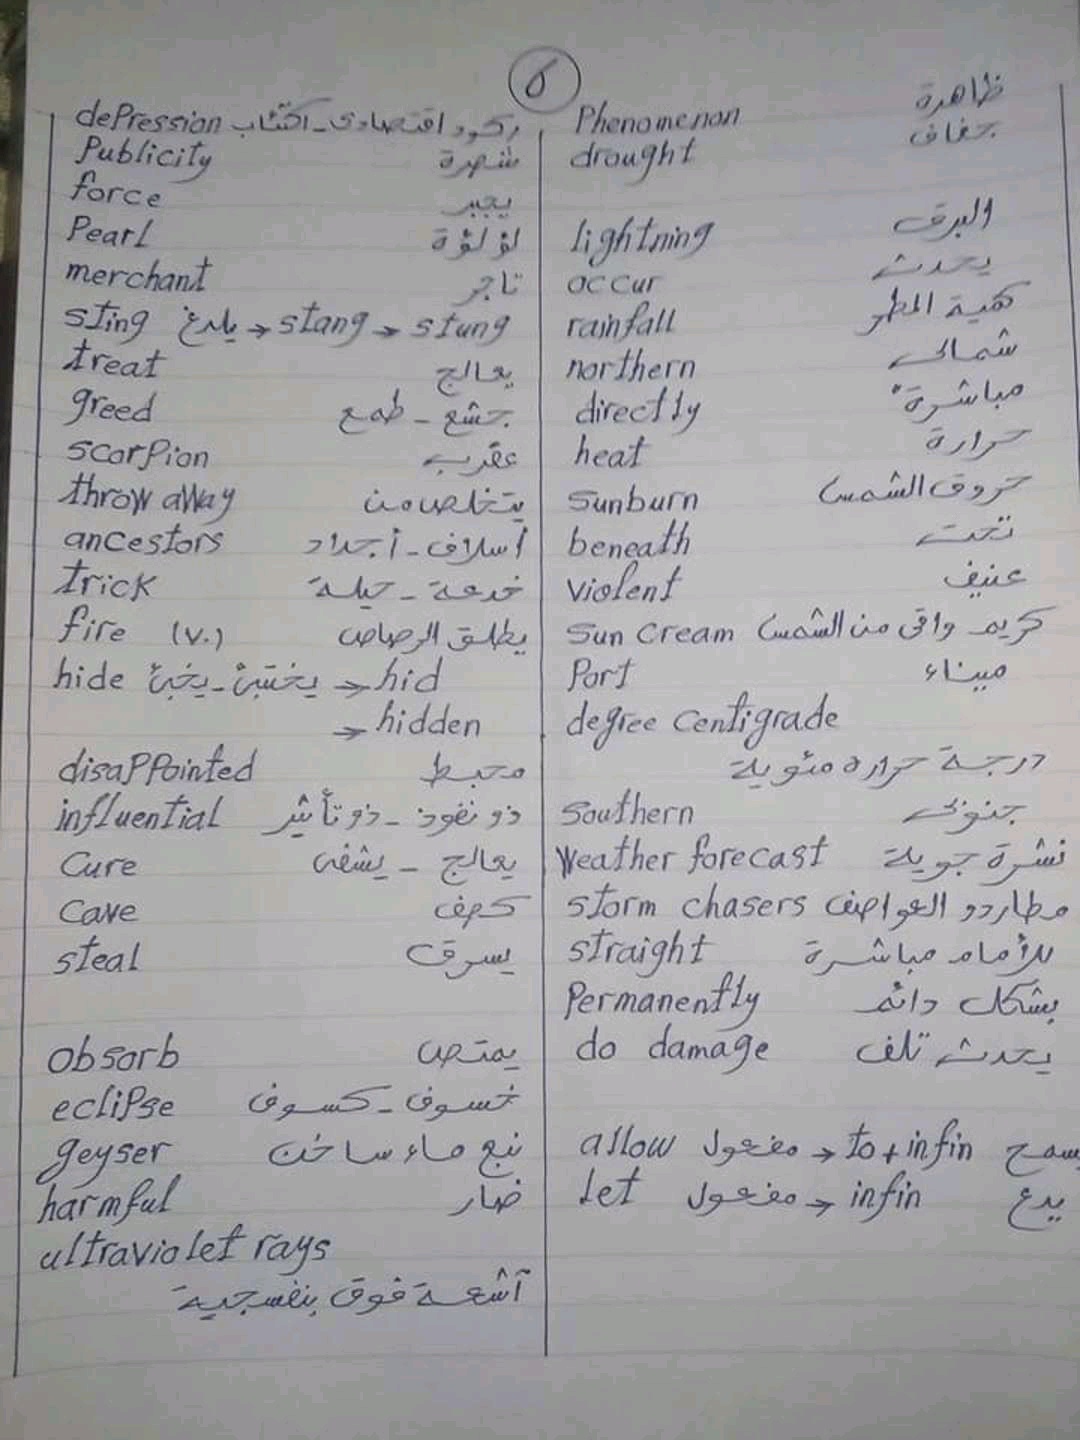 ٥
depression ركود اقتصادى - اكتئاب
Publicity شهرة
force يجبر
Pearl لؤلؤة
merchant تاجر
sting يلدغ → stang → stung
treat يعالج
greed جشع - طمع
scorpion عقرب
throw away يتخلص من
ancestors أسلاف - أجداد
trick خدعة - حيلة
fire (v.) يطلق الرصاص
hide يختبئ - يخبئ → hid
→ hidden
disappointed محبط
influential ذو نفوذ - ذو تأثير
Cure يعالج - يشفى
Cave كهف
steal يسرق
obsorb يمتص
eclipse خسوف - كسوف
geyser نبع ماء ساخن
harmful ضار
ultraviolet rays
آشعة فوق بنفسجية
Phenomenon ظاهرة
drought جفاف
lightning البرق
occur يحدث
rainfall كمية المطر
northern شمالى
directly مباشرة
heat حرارة
Sunburn حروق الشمس
beneath تحت
violent عنيف
Sun Cream كريم واقى من الشمس
Port ميناء
degree Centigrade
درجة حراره مئوية
Southern جنوبى
Weather forecast نشرة جوية
storm chasers مطاردو العواصف
straight للأمام مباشرة
Permanently بشكل دائم
do damage يحدث تلف
allow مفعول → to + infin يسمح
let مفعول → infin يدع